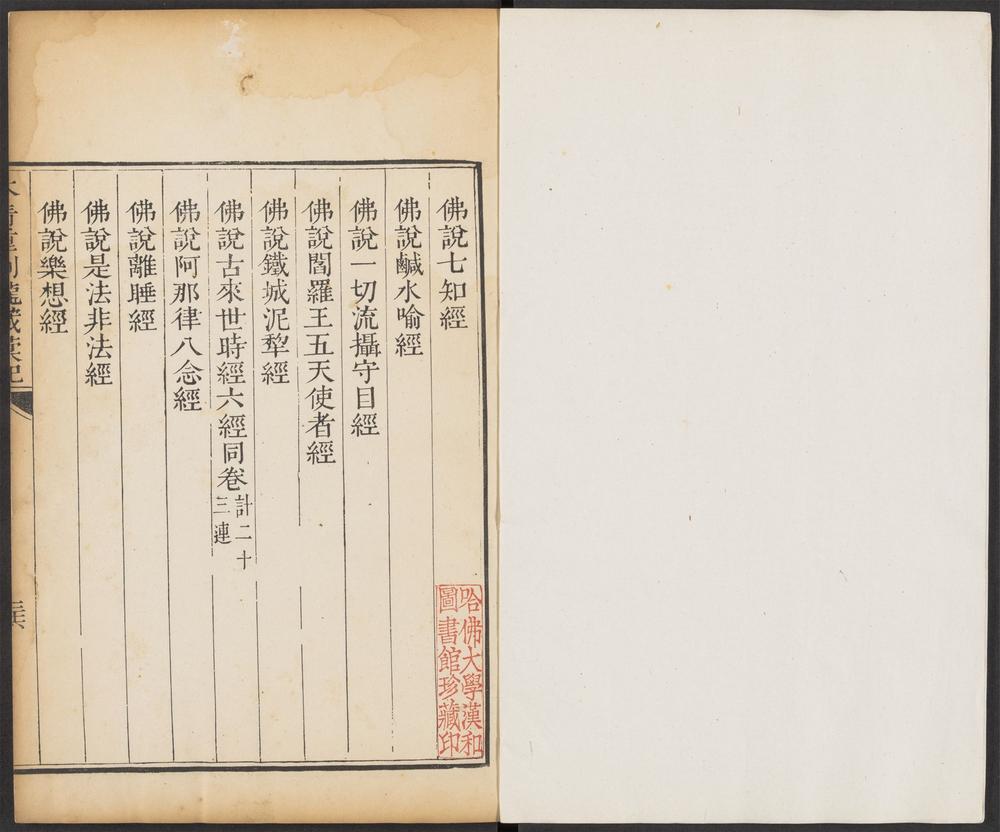 佛說七知經
佛說鹹水喻經
佛說一切流攝守目經
佛說閻羅王五天使者經
佛說鐵城泥犂經
佛說古來世時經六經同卷計二十三連
佛說阿那律八念經
佛說離睡經
佛說是法非法經
佛說樂想經
哈佛大學漢和
圖書館珍藏印